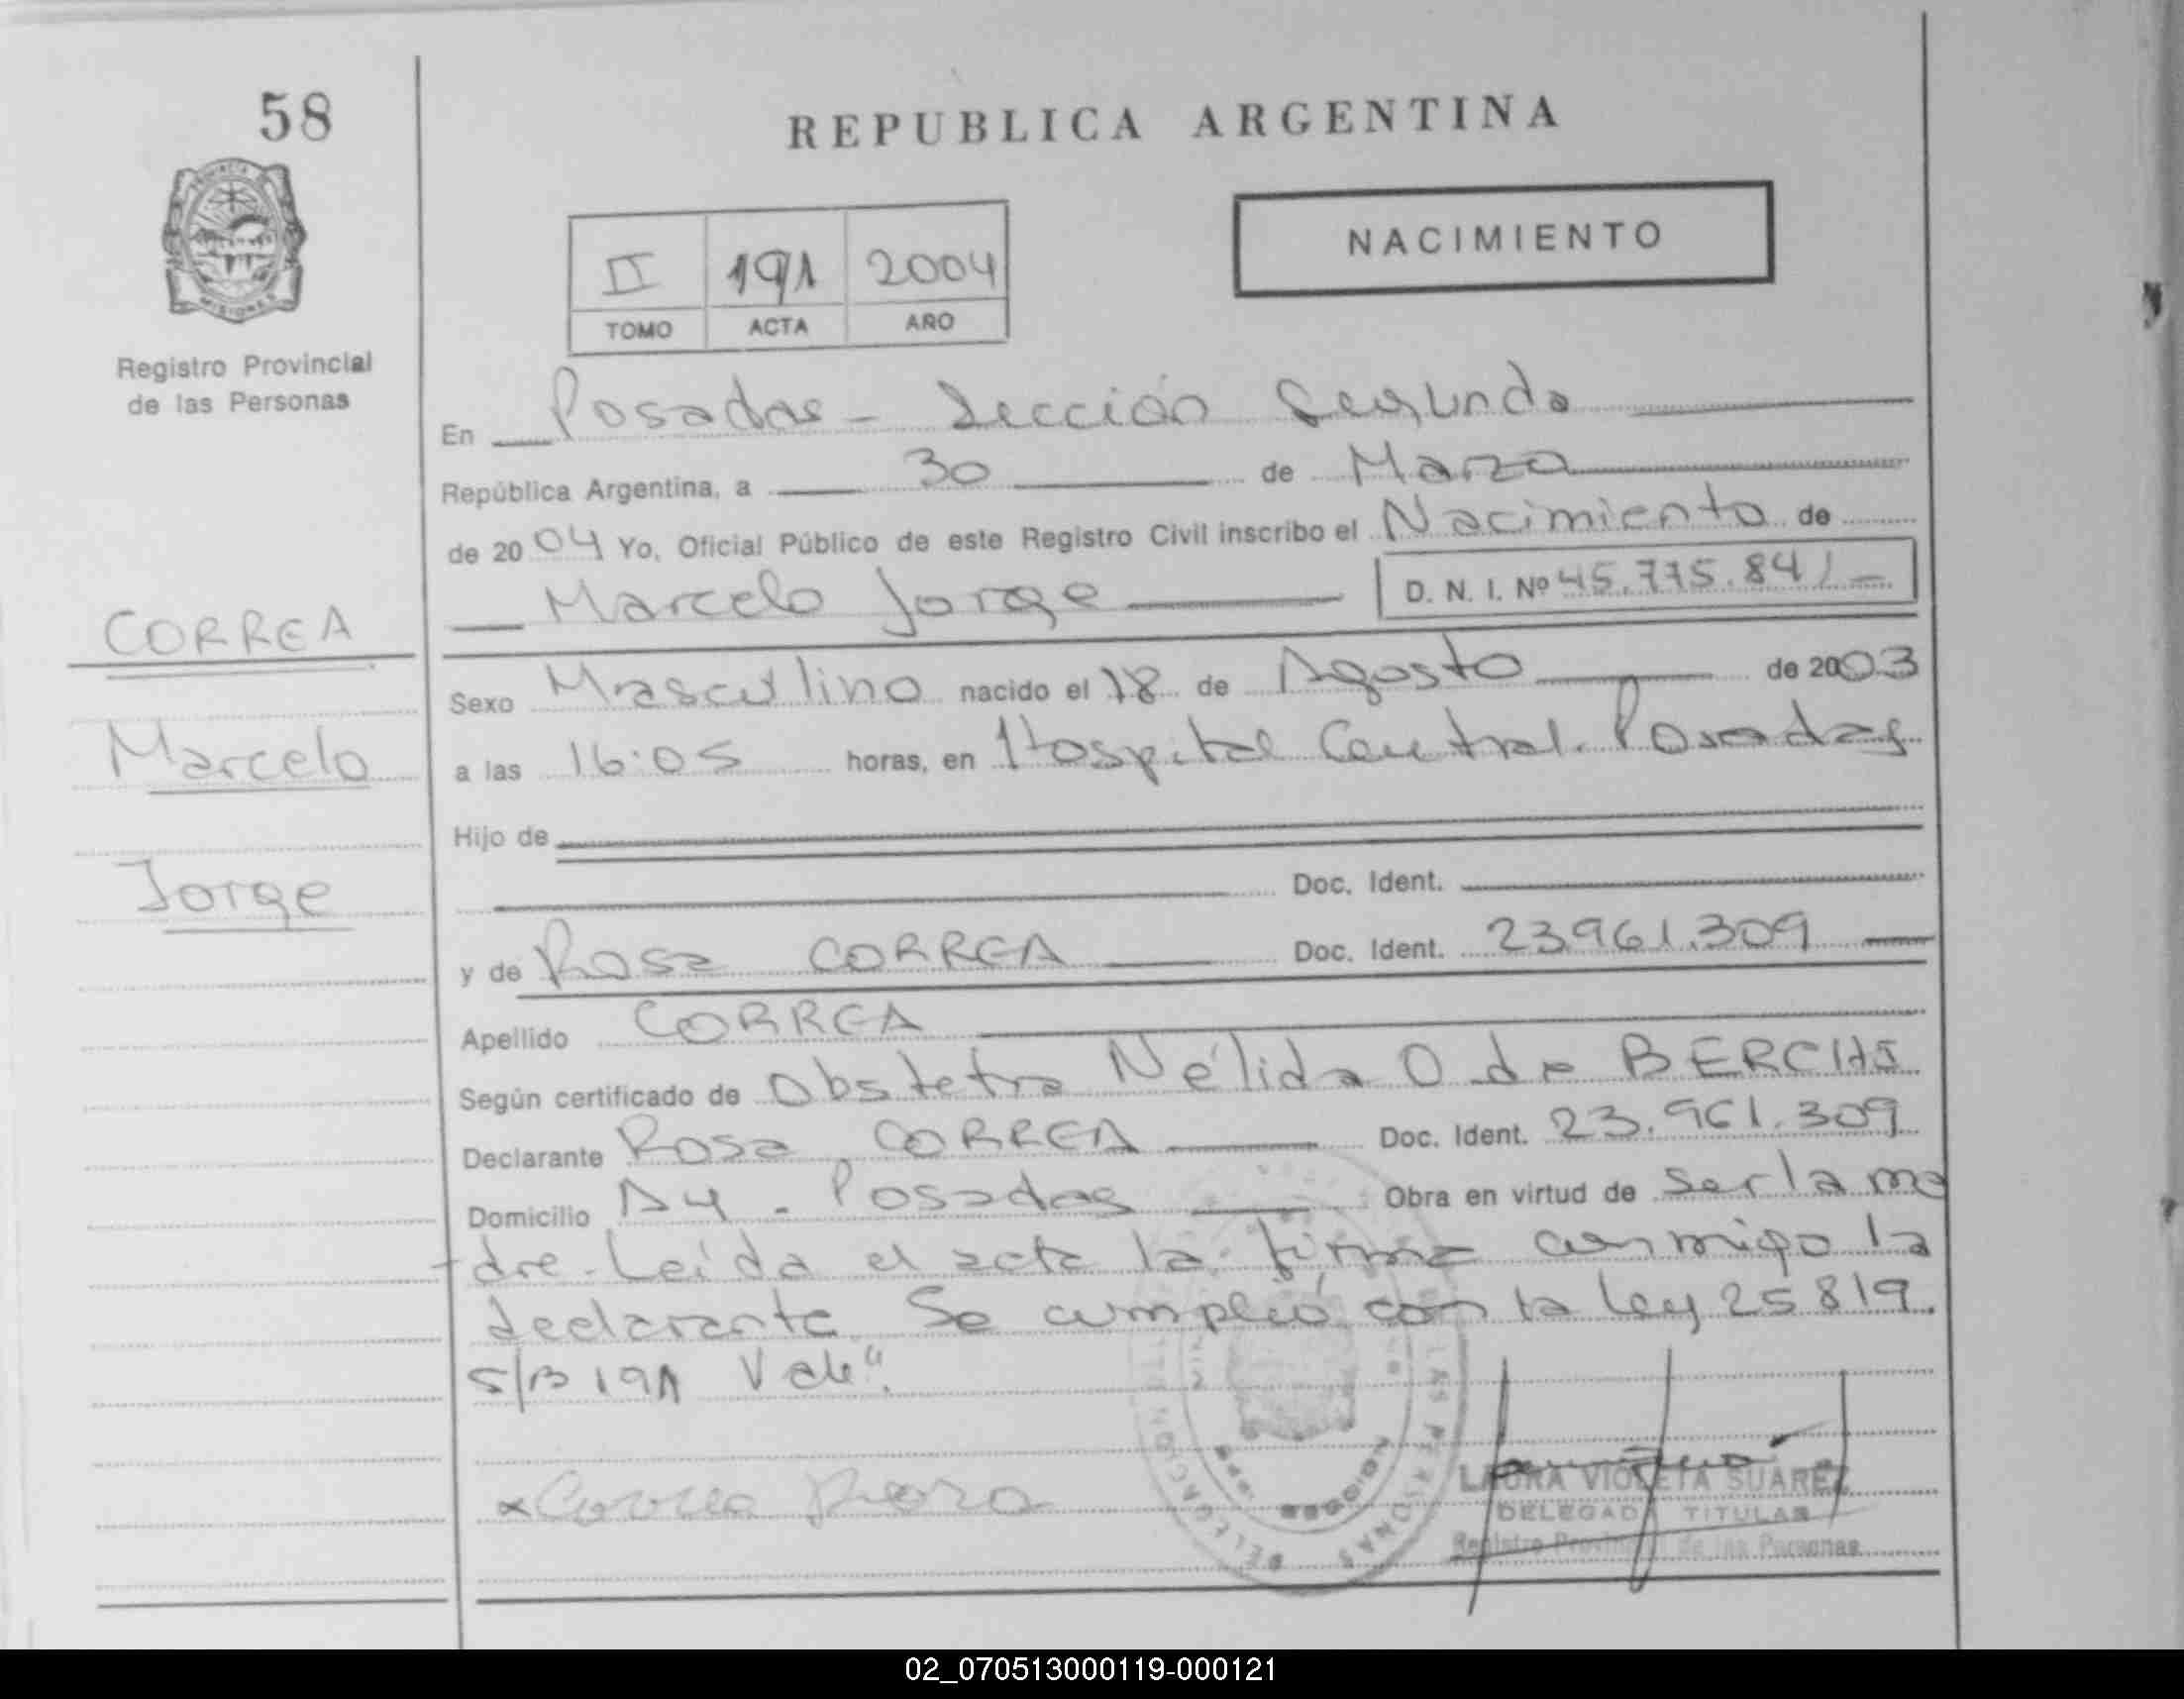 58
REPUBLICA ARGENTINA
NACIMIENTO
II 191 2004
TOMO ACTA AÑO
Registro Provincial
de las Personas
En Posadas - Sección Segunda
República Argentina, a 30 de Marzo
de 2004 Yo, Oficial Público de este Registro Civil inscribo el Nacimiento de
Marcelo Jorge D. N. I. Nº 45.775.841
CORREA
Marcelo
Jorge
Sexo Masculino nacido el 18 de Agosto de 2003
a las 16:05 horas, en Hospital Central. Posadas
Hijo de
Doc. Ident.
y de Rosa CORREA Doc. Ident. 23.961.309
Apellido CORREA
Según certificado de Obstetra Nélida O. de BERCHI
Declarante Rosa CORREA Doc. Ident. 23.961.309
Domicilio A4 - Posadas Obra en virtud de ser la ma
dre. Leída el acta la firma conmigo la
declarante. Se cumplió con la Ley 25819.
S/B 191 Vale".
x Correa Rosa
LAURA VIOLETA SUAREZ
DELEGADA TITULAR
Registro Provincial de las Personas
02_070513000119-000121